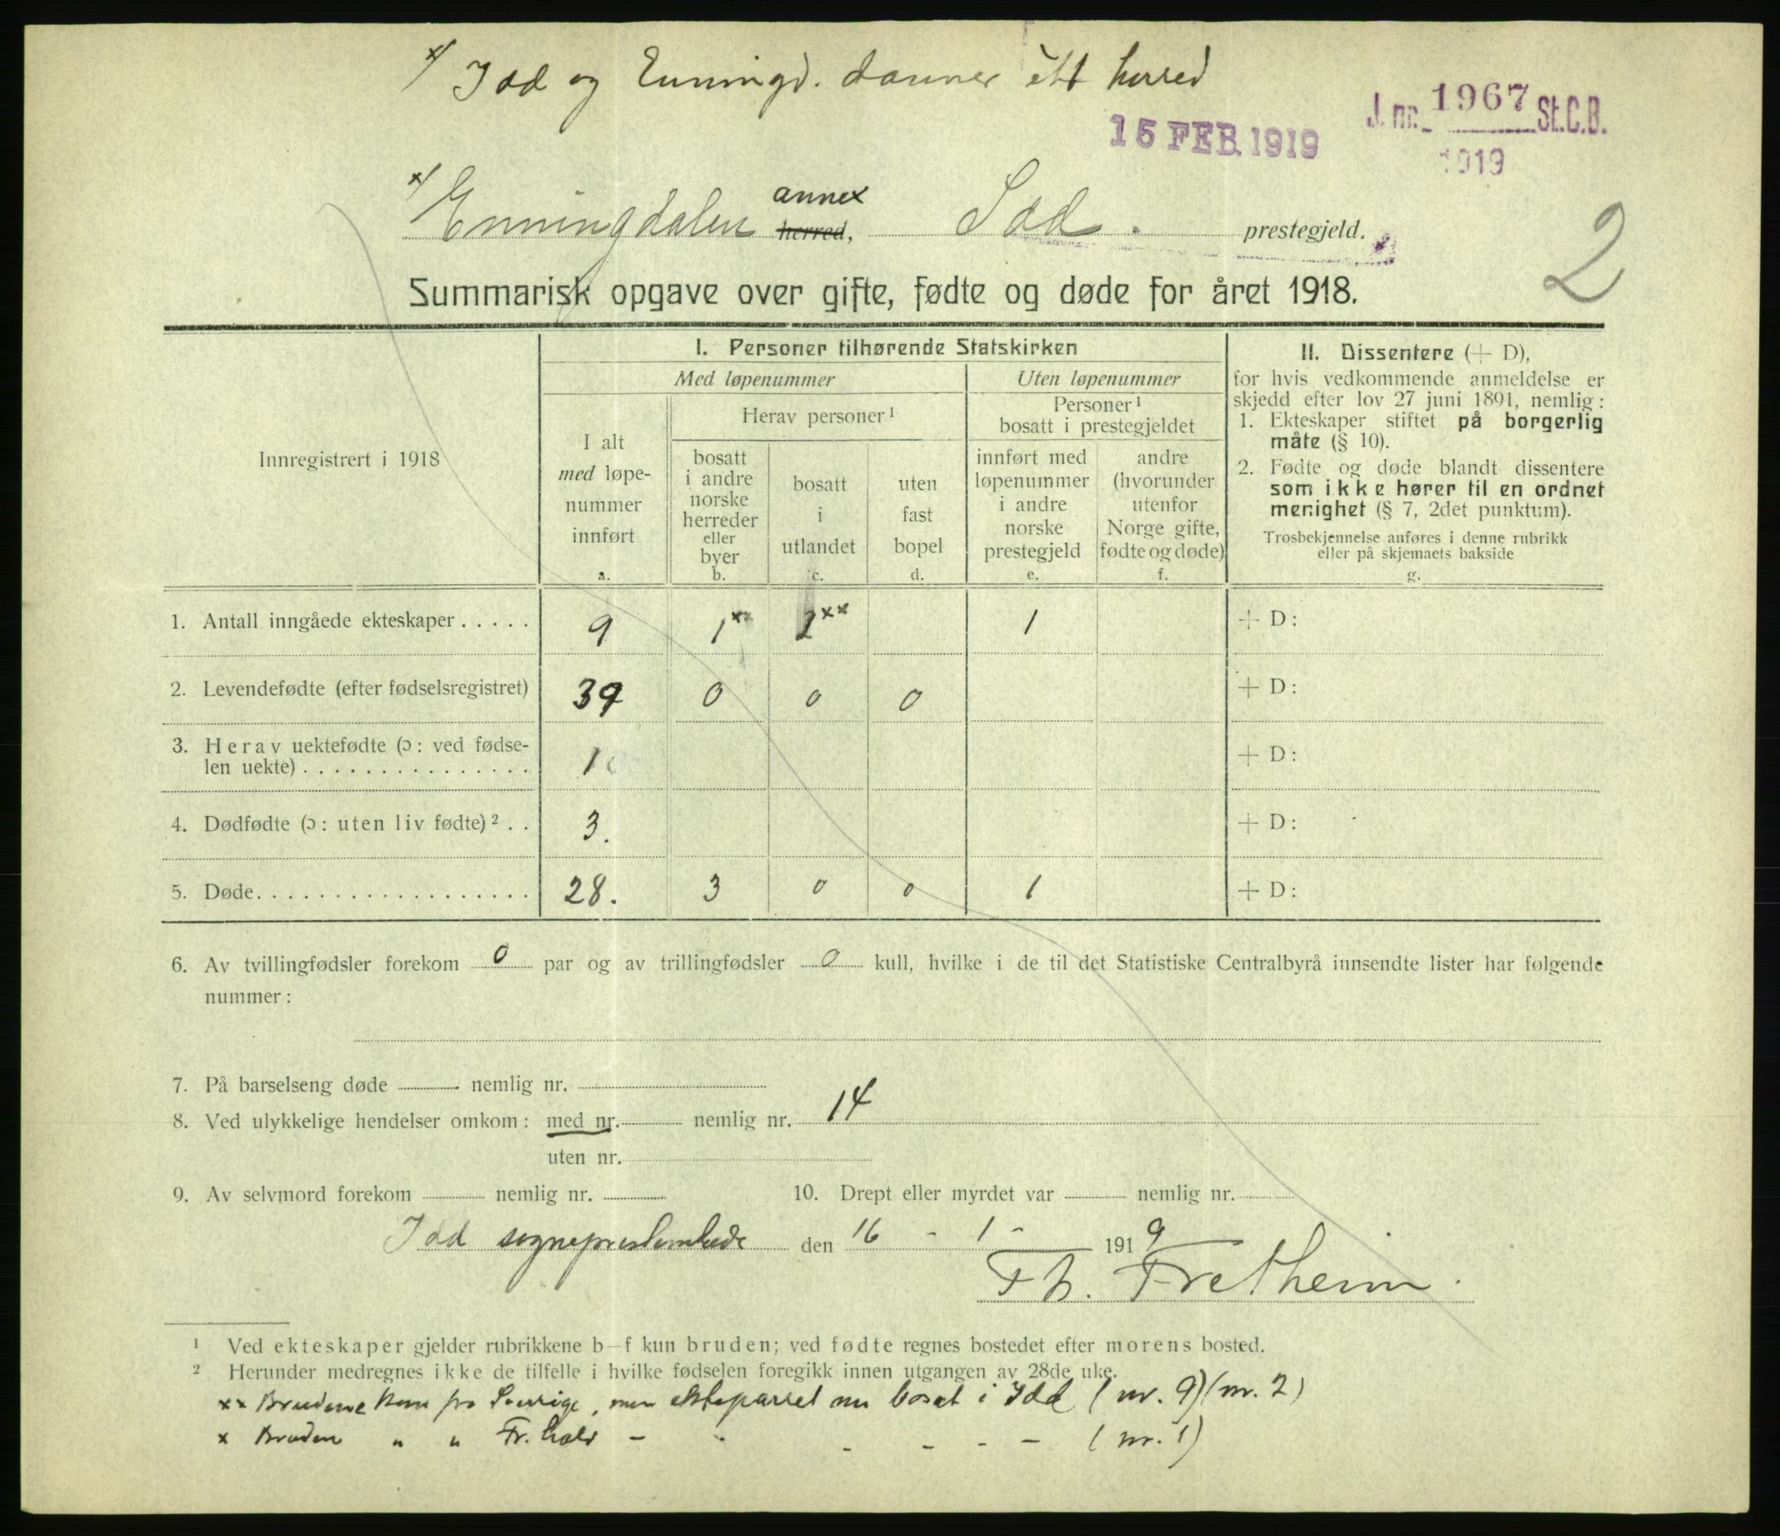 x/ Idd og Enningd. danner ett herred
15 FEB. 1919
J. nr. 1967 St.C.B.
1919
x/ Enningdalen annex herred, Idd. prestegjeld.
2
Summarisk opgave over gifte, fødte og døde for året 1918.
Innregistrert i 1918
I. Personer tilhørende Statskirken
Med løpenummer
Uten løpenummer
I alt
med løpe-
nummer
innført
a.
Herav personer¹
bosatt
i andre
norske
herreder
eller
byer
b.
bosatt
i
utlandet
c.
uten
fast
bopel
d.
Personer¹
bosatt i prestegjeldet
innført med
løpenummer
i andre
norske
prestegjeld
e.
andre
(hvorunder
utenfor
Norge gifte,
fødte og døde)
f.
II. Dissentere (+ D),
for hvis vedkommende anmeldelse er
skjedd efter lov 27 juni 1891, nemlig:
1. Ekteskaper stiftet på borgerlig
måte (§ 10).
2. Fødte og døde blandt dissentere
som ikke hører til en ordnet
menighet (§ 7, 2det punktum).
Trosbekjennelse anføres i denne rubrikk
eller på skjemaets bakside
g.
1. Antall inngåede ekteskaper . . . . . 9 1 xx 2 xx 1 + D:
2. Levendefødte (efter fødselsregistret) 39 0 0 0 + D:
3. Herav uektefødte (ɔ: ved fødse-
len uekte) . . . . . . . . . . . . . . . 1 + D:
4. Dødfødte (ɔ: uten liv fødte)² . . 3. + D:
5. Døde. . . . . . . . . . . . . . . . . . 28. 3 0 0 1 + D:
6. Av tvillingfødsler forekom 0 par og av trillingfødsler 0 kull, hvilke i de til det Statistiske Centralbyrå innsendte lister har følgende
nummer:
7. På barselseng døde nemlig nr.
8. Ved ulykkelige hendelser omkom: med nr. nemlig nr. 14
uten nr.
9. Av selvmord forekom nemlig nr. 10. Drept eller myrdet var nemlig nr.
Idd sogneprestembede den 16 - 1 - 1919
Th. Fretheim.
¹ Ved ekteskaper gjelder rubrikkene b–f kun bruden; ved fødte regnes bostedet efter morens bosted.
² Herunder medregnes ikke de tilfelle i hvilke fødselen foregikk innen utgangen av 28de uke.
xx Brudene kom fra Sverige, men ekteparret nu bosat i Idd (nr. 9) (nr. 2)
x Bruden " " Fr.hald - - - - - - (nr. 1)